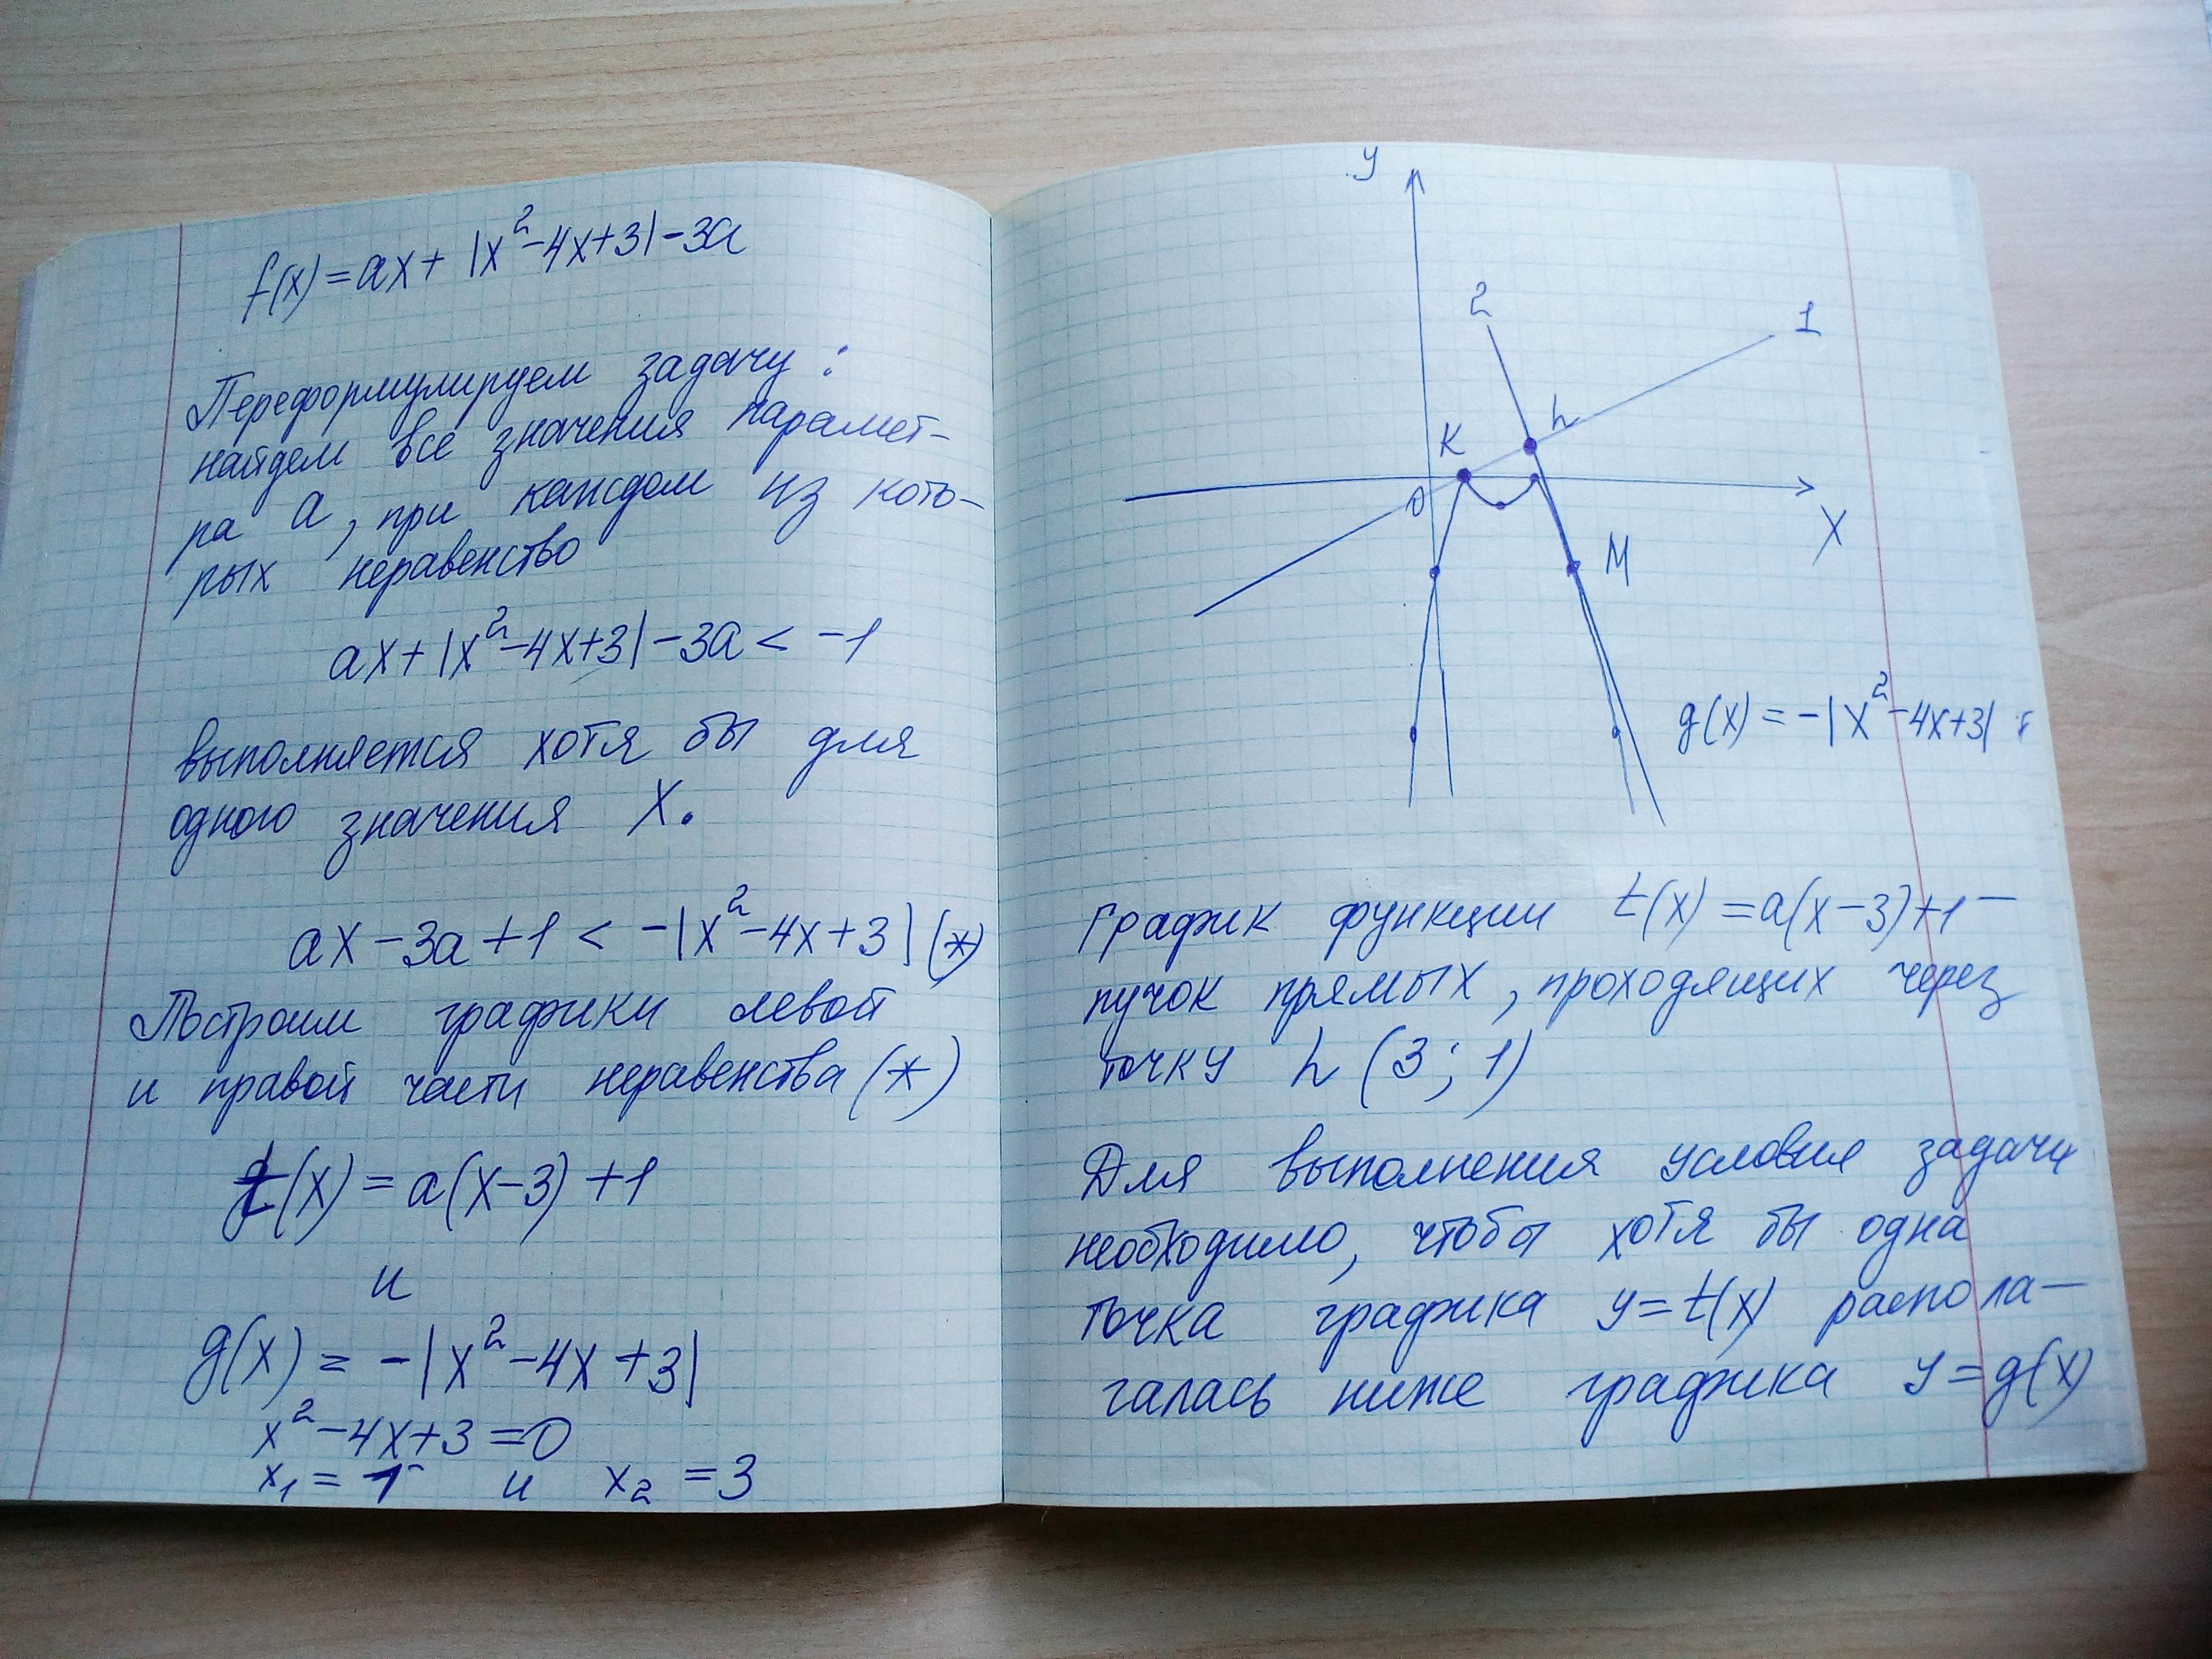 f(x) = ax + |x²-4x+3| - 3a
Переформулируем задачу:
найдем все значения парамет-
ра a, при каждом из кото-
рых неравенство
ax + |x²-4x+3| - 3a < -1
выполняется хотя бы для
одного значения x.
ax - 3a + 1 < -|x²-4x+3| (*)
Построим графики левой
и правой части неравенства (*)
t(x) = a(x-3) + 1
и
g(x) = -|x²-4x+3|
x²-4x+3 = 0
x₁ = 1 и x₂ = 3
y
2
1
K
L
0
X
M
g(x) = -|x²-4x+3|
График функции t(x) = a(x-3)+1 —
пучок прямых, проходящих через
точку L (3; 1)
Для выполнения условия задачи
необходимо, чтобы хотя бы одна
точка графика y = t(x) распола-
галась ниже графика y = g(x)